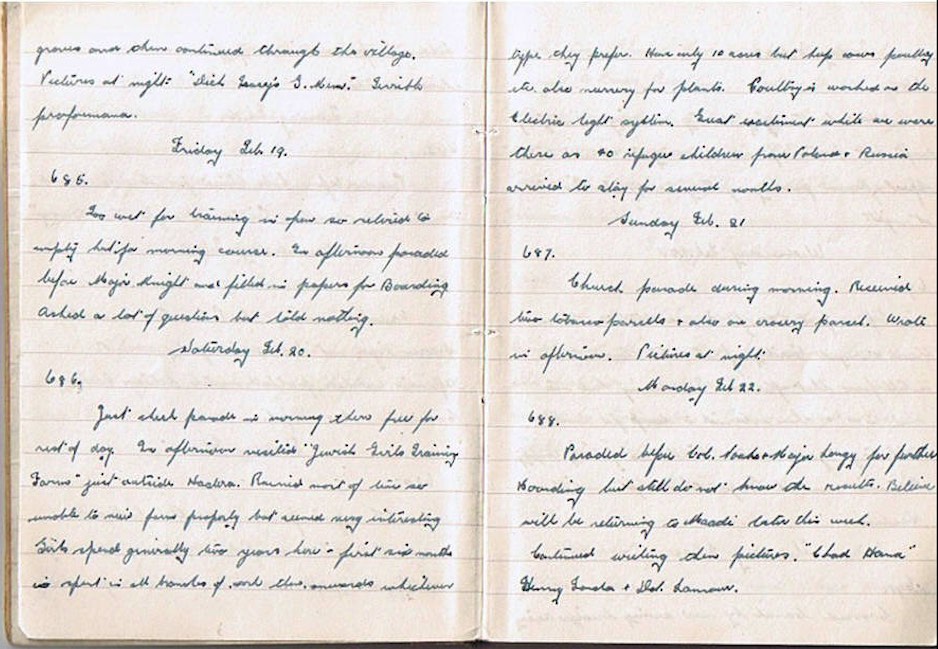 groves and then continued through the village.
Pictures at night. "Dick Tracy's G. Men." Terrible
performance.
Friday Feb. 19.
685.
Too wet for training in so retired to
empty for morning course. In afternoon paraded
before Major Knight and filled in papers for Boarding
Asked a lot of questions but told nothing.
Saturday Feb. 20.
686.
Just check parade in morning then free for
rest of day. In afternoon visited "Jewish Girls Training
Farm" just outside Hadera. Rained most of time so
unable to view farm properly but seemed very interesting
Girls spend generally two years here - first six months
is spent in all branches of work then onwards whichever
type they prefer. Have only 10 acres but keep cows poultry
etc. also nursery for plants. Poultry is worked on the
Electric light system. Great excitement while we were
there as 40 refugee children from Poland + Russia
arrived to stay for several months.
Sunday Feb. 21
687.
Church parade during morning. Received
two tobacco parcels + also one grocery parcel. Wrote
in afternoon. Pictures at night.
Monday Feb 22.
688.
Paraded before Col. + Major for further
Boarding but still do not know the results. Believe
will be returning to Maadi later this week.
Continued writing then pictures. "Chad Hana"
Henry Fonda + Dot. Lamour.